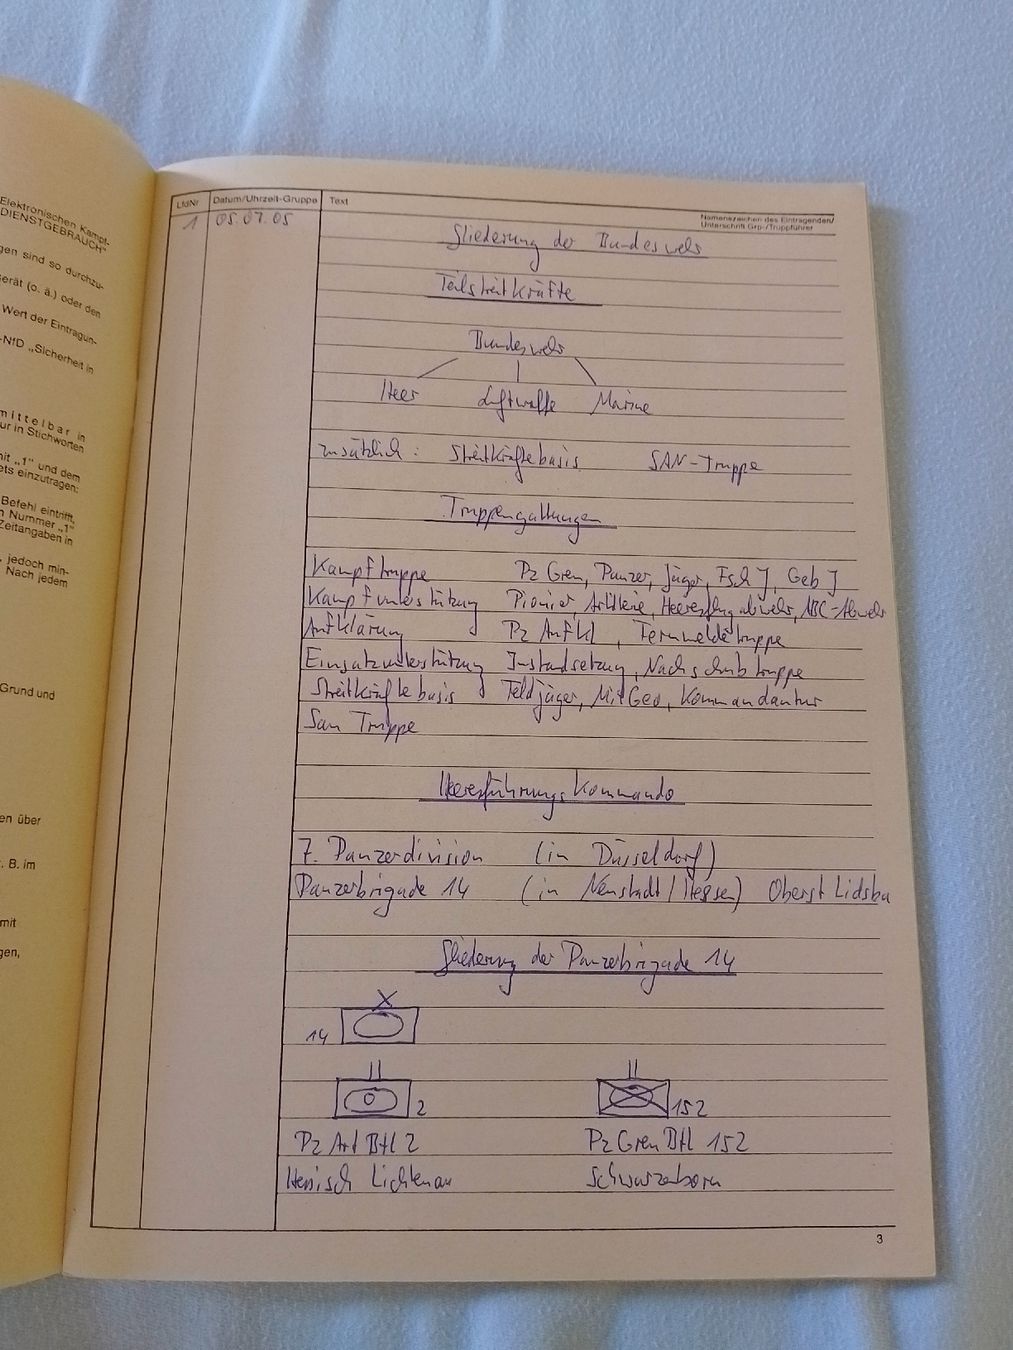 Elektronischen Kampf-
DIENSTGEBRAUCH"
gen sind so durchzu-
erät (o. ä.) oder den
Wert der Eintragun-
-NfD „Sicherheit in
mittelbar in
ur in Stichworten
mit „1" und dem
ets einzutragen:
Befehl eintrifft,
n Nummer „1"
Zeitangaben in
, jedoch min-
Nach jedem
Grund und
en über
. B. im
mit
gen,
LfdNr Datum/Uhrzeit-Gruppe Text
Namenszeichen des Eintragenden/
Unterschrift Grp-/Truppführer
1 05.07.05
Gliederung der Bundeswehr
Teilstreitkräfte
Bundeswehr
Heer Luftwaffe Marine
zusätzlich: Streitkräftebasis SAN-Truppe
Truppengattungen
Kampftruppe Pz Gren, Panzer, Jäger, Fsch J, Geb J
Kampfunterstützung Pionier, Artillerie, Heeresflugabwehr, ABC-Abwehr
Aufklärung Pz Aufkl, Fernmeldetruppe
Einsatzunterstützung Instandsetzung, Nachschubtruppe
Streitkräftebasis Feldjäger, MilGeo, Kommandantur
San Truppe
Heeresführungskommando
7. Panzerdivision (in Düsseldorf)
Panzerbrigade 14 (in Neustadt/Hessen) Oberst
Gliederung der Panzerbrigade 14
14
2 152
Pz Art Btl 2 Pz Gren Btl 152
Hessisch Lichtenau Schwarzenborn
3